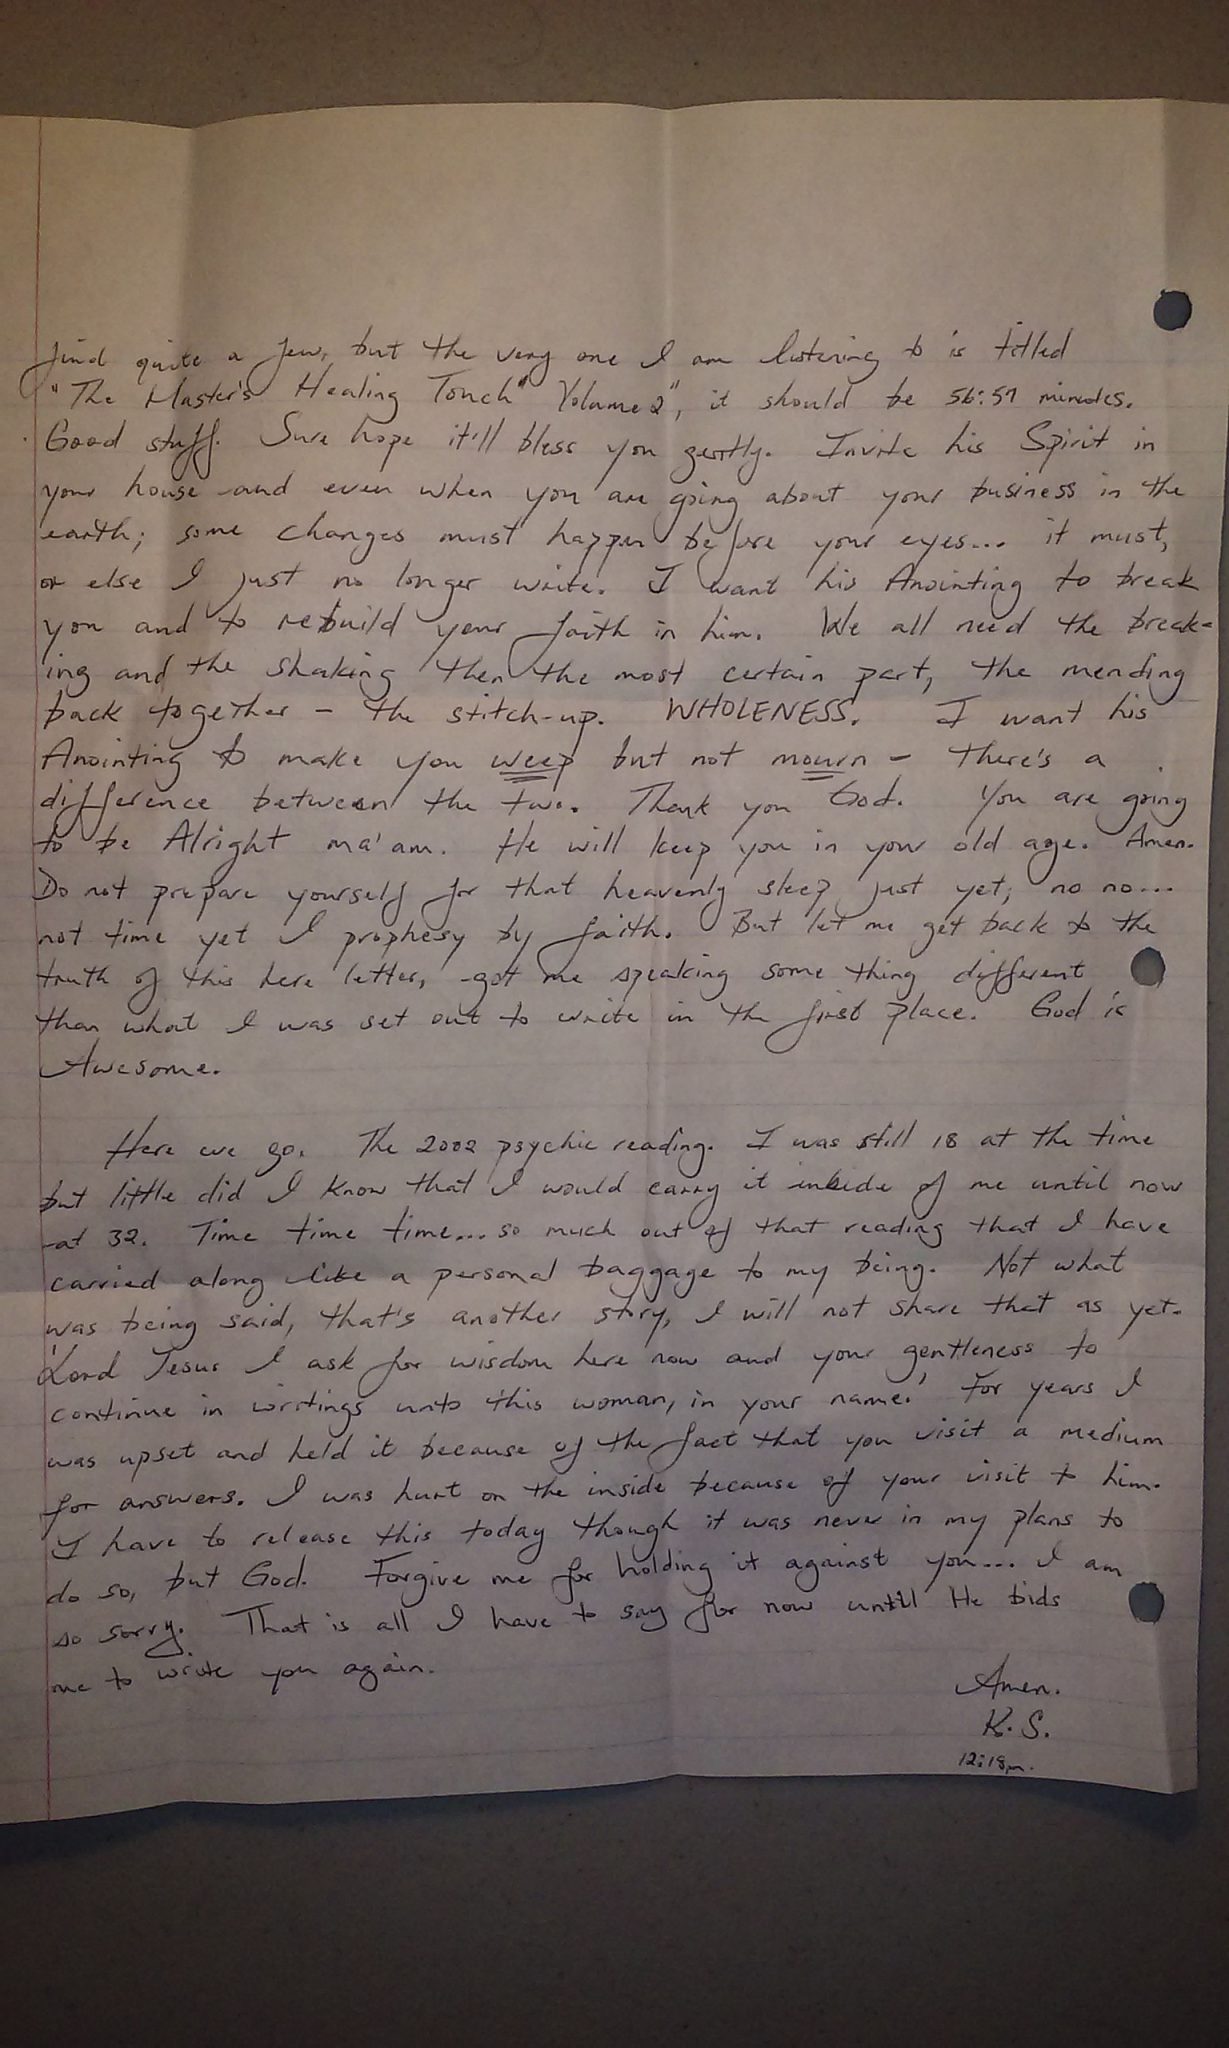 find quite a few, but the very one I am listening to is titled
"The Master's Healing Touch" Volume 2", it should be 56:57 minutes.
Good stuff. Sure hope it'll bless you gently. Invite his Spirit in
your house and even when you are going about your business in the
earth; some changes must happen before your eyes... it must,
or else I just no longer write. I want his Anointing to break
you and to rebuild your faith in him. We all need the break-
ing and the shaking then the most certain part, the mending
back together - the stitch-up. WHOLENESS. I want his
Anointing to make you weep but not mourn - there's a
difference between the two. Thank you God. You are going
to be Alright ma'am. He will keep you in your old age. Amen.
Do not prepare yourself for that heavenly sleep just yet; no no...
not time yet I prophesy by faith. But let me get back to the
truth of this here letter, got me speaking some thing different
than what I was set out to write in the first place. God is
Awesome.
Here we go. The 2002 psychic reading. I was still 18 at the time
but little did I know that I would carry it inside of me until now
at 32. Time time time... so much out of that reading that I have
carried along like a personal baggage to my being. Not what
was being said, that's another story, I will not share that as yet.
'Lord Jesus I ask for wisdom here now and your gentleness to
continue in writings unto this woman, in your name.' For years I
was upset and held it because of the fact that you visit a medium
for answers. I was hurt on the inside because of your visit to him.
I have to release this today though it was never in my plans to
do so, but God. Forgive me for holding it against you... I am
so sorry. That is all I have to say for now until He bids
me to write you again.
Amen.
K. S.
12:18pm.